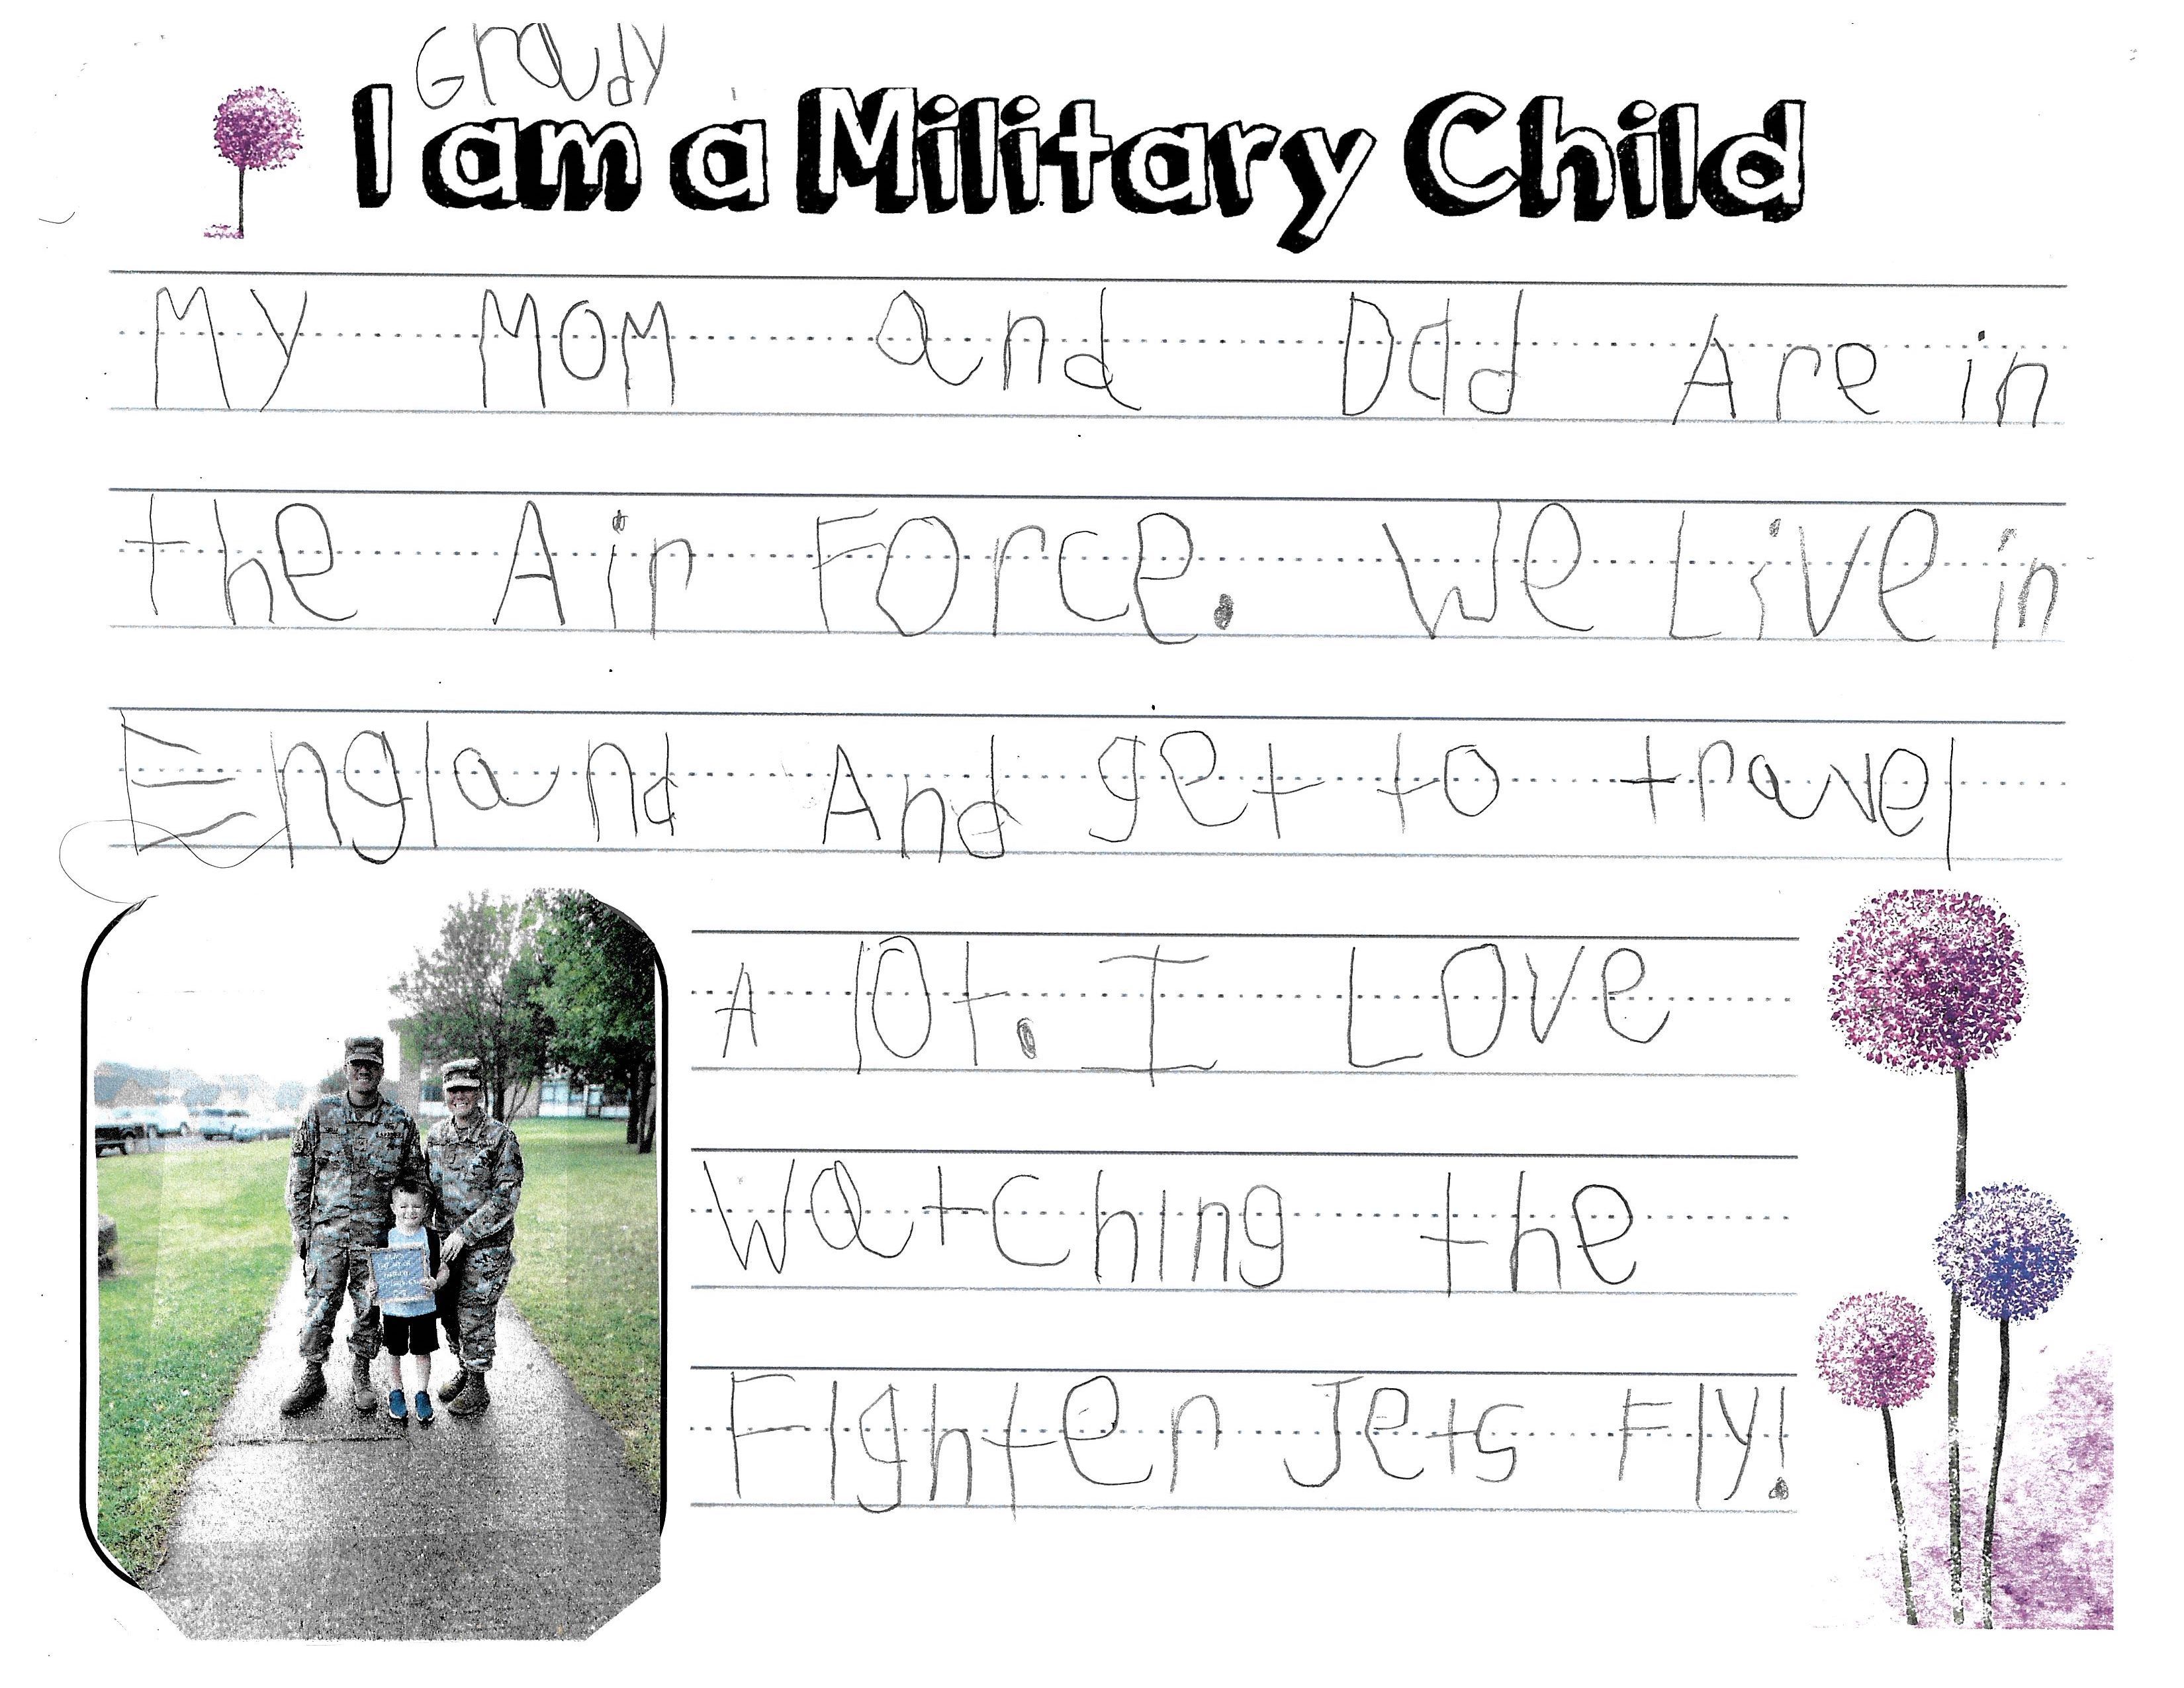 Grady
I am a Military Child
My MOM and Dad Are in
the Air Force. We Live in
England And get to travel
A lot. I Love
Watching the
Fighter Jets Fly!